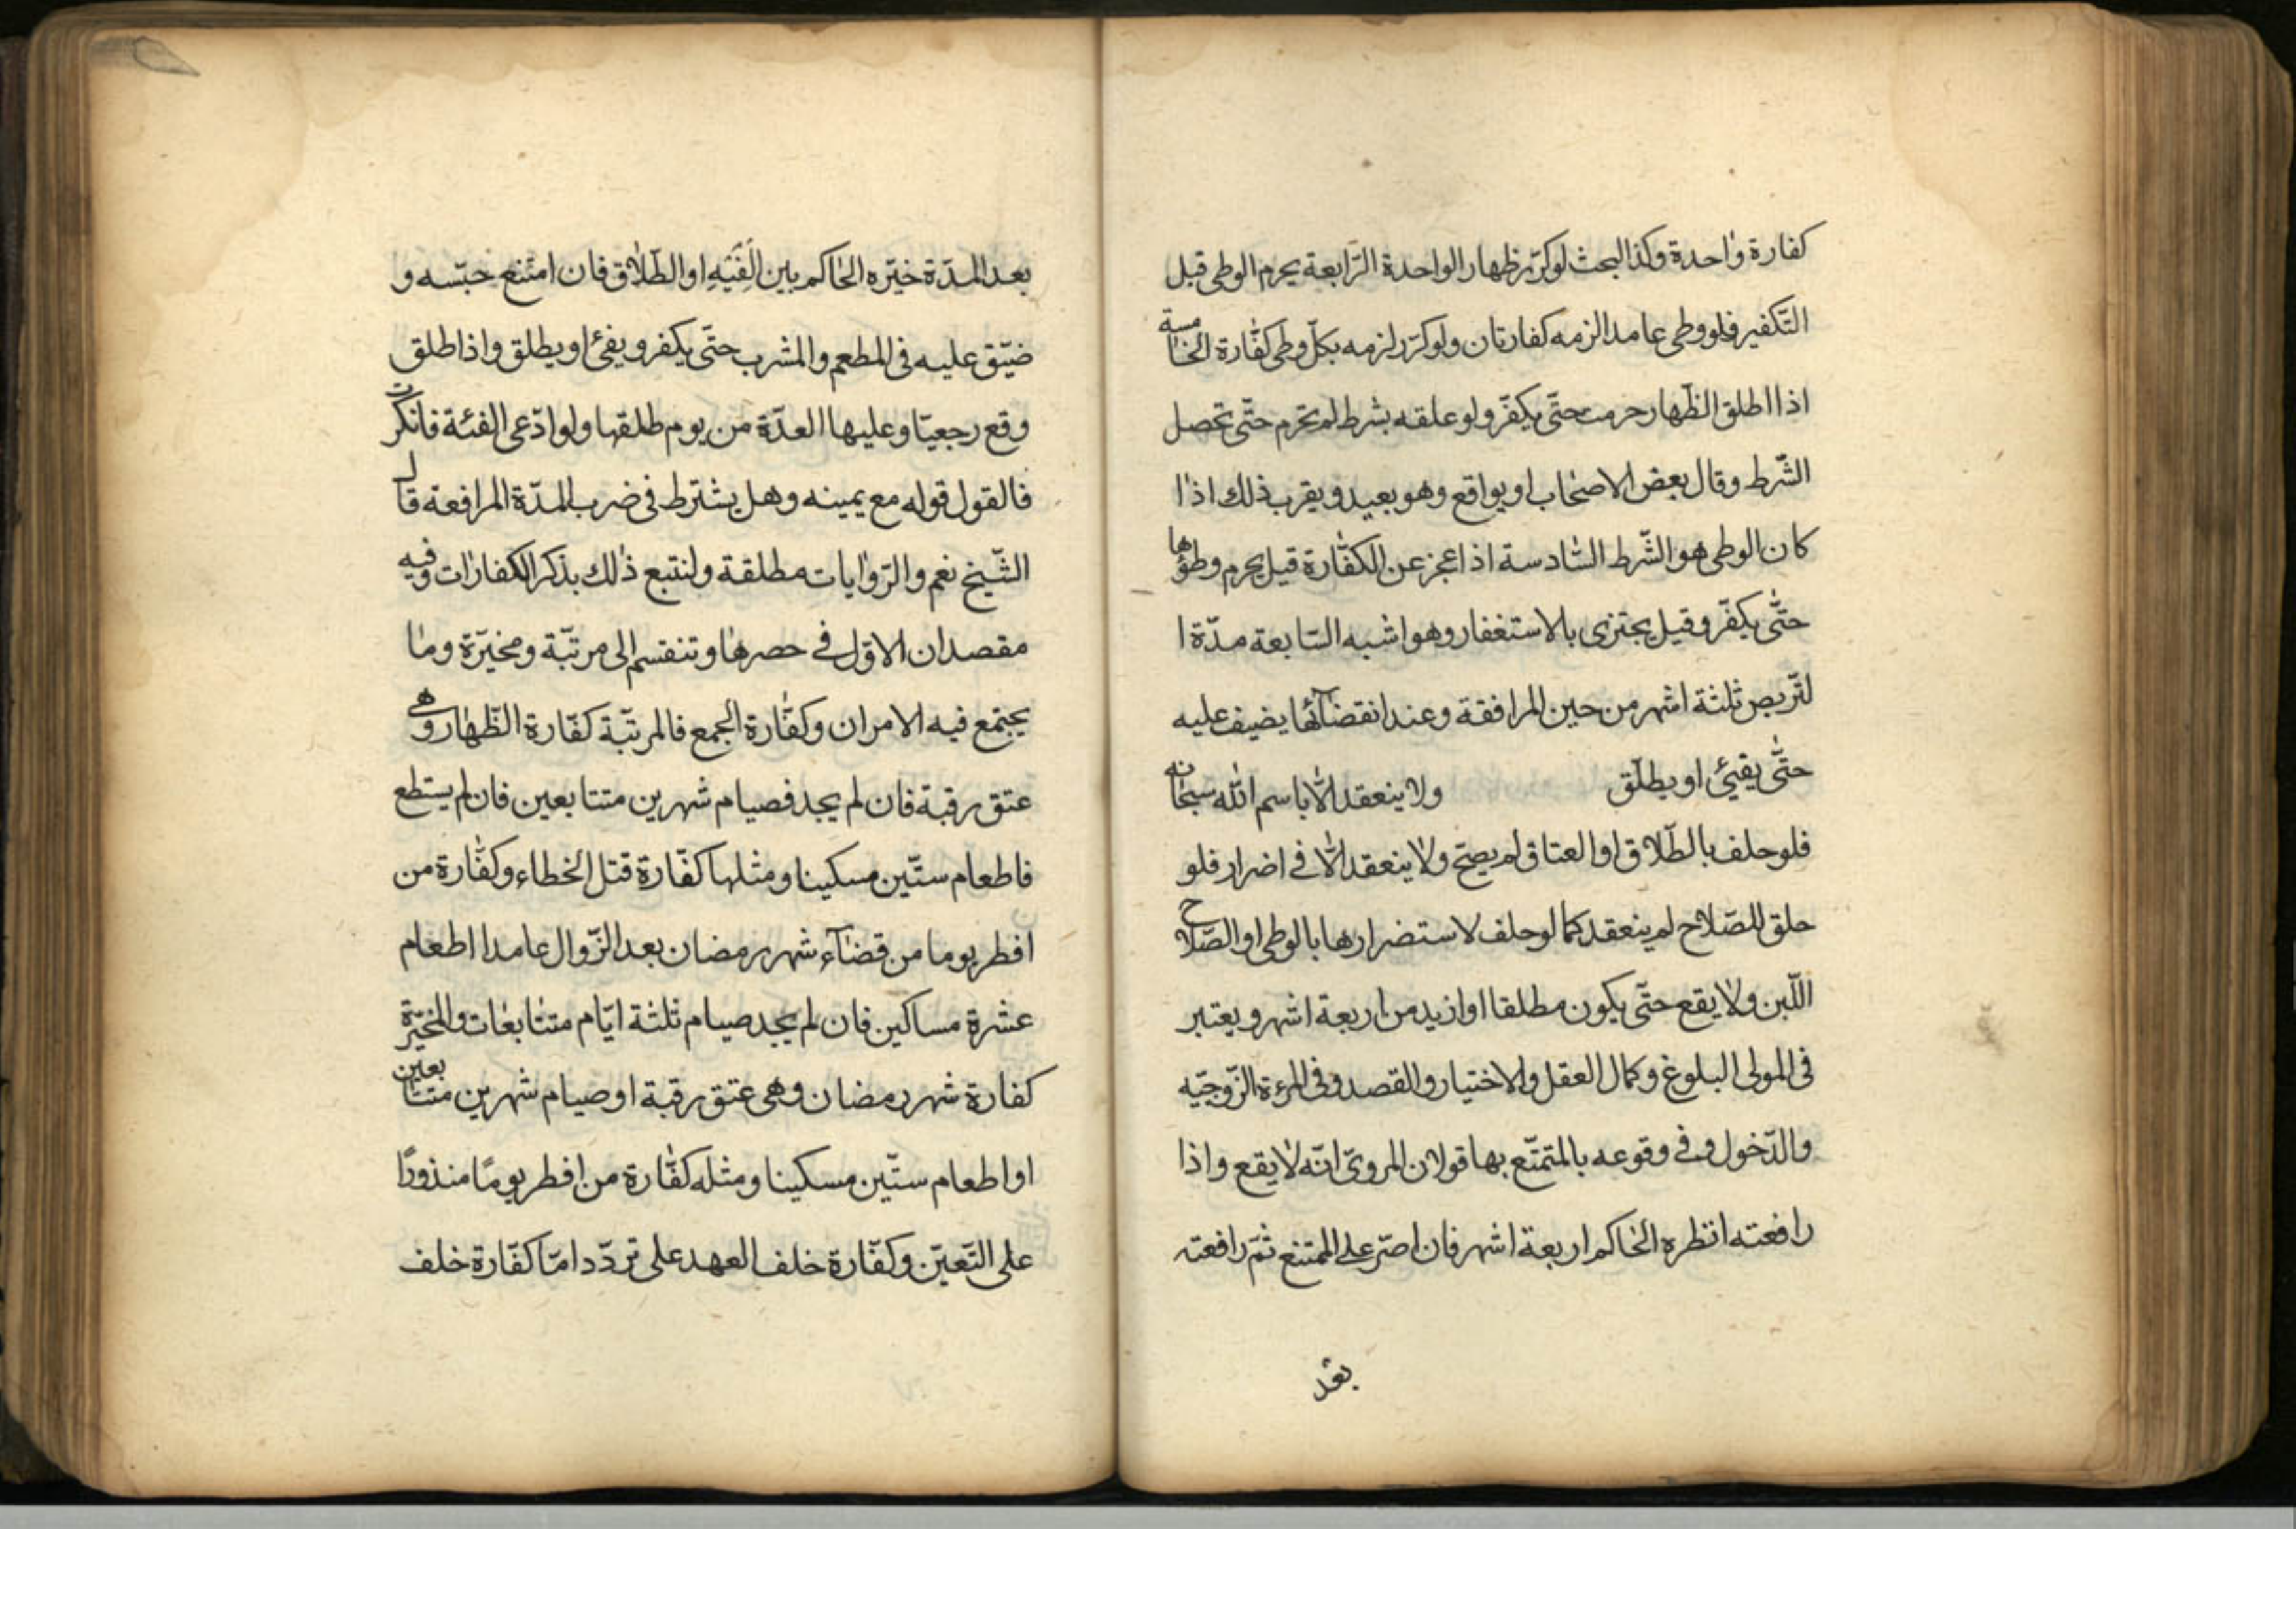 كفارة واحدة وكذا البحث لو كرّر ظهار الواحدة الرّابعة يحرم الوطى قبل
التّكفير فلو وطى عامدا لزمه كفارتان ولو كرّر لزمه بكلّ وطى كفّارة الخامسة
اذا اطلق الظّهار حرمت حتّى يكفّر ولو علقه بشرط لم تحرم حتّى تحصل
الشّرط وقال بعض الاصحاب او يواقع وهو بعيد ويقرب ذلك اذا
كان الوطى هو الشّرط السّادسة اذا عجز عن الكفّارة قيل يحرم وطؤها
حتّى يكفّر وقيل يجتزى بالاستغفار وهو اشبه السّابعة مدّة ا
لتّربص ثلثة اشهر من حين المرافقة وعند انقضآئها يضيف عليه
حتّى يفيئ او يطلّق ولا ينعقد الّا باسم اللّه سبحانه
فلو حلف بالطّلاق او العتاق لم يصحّ ولا ينعقد الّا فى اضرار فلو
حلق للصّلاح لم ينعقد كما لو حلف لاستضرارها بالوطى او الصّلاح
اللّبن ولا يقع حتّى يكون مطلقا او ازيد من اربعة اشهر ويعتبر
فى المولى البلوغ وكمال العقل والاختيار والقصد وفى المرءة الزّوجيّه
والدّخول وفى وقوعه بالمتمتّع بها قولان المروىّ انّه لا يقع واذا
رافعته انظره الحاكم اربعة اشهر فان اصرّ على الممتنع ثمّ رافعته
بعد
بعد المدّة خيّره الحاكم بين الفَئيةِ او الطّلاق فان امتنع حبّسه و
ضيّق عليه فى المطعم والمشرب حتّى يكفر ويفئ او يطلق واذا طلق
وقع رجعيّا وعليها العدّة من يوم طلقها ولو ادّعى الفئة فانكرت
فالقول قوله مع يمينه وهل يشترط فى ضرب المدّة المرافعة قال
الشّيخ نعم والرّوايات مطلقة ولنتبع ذلك بذكر الكفارات وفيه
مقصدان الاوّل فى حصرها وتنقسم الى مرتّبة ومخيّرة وما
يجتمع فيه الامران وكفّارة الجمع فالمرتّبة كفّارة الظّهار وهى
عتق رقبة فان لم يجد فصيام شهرين متتابعين فان لم يستطع
فاطعام ستّين مسكينا ومثلها كفّارة قتل الخطاء وكفّارة من
افطر يوما من قضآء شهر رمضان بعد الزّوال عامدا اطعام
عشرة مساكين فان لم يجد صيام ثلثة ايّام متتابعات والمخيّرة
كفارة شهر رمضان وهى عتق رقبة او صيام شهرين متتابعين
او اطعام ستّين مسكينا ومثله كفّارة من افطر يومًا منذورًا
على التّعيّن وكفّارة خلف العهد على تردّد امّا كفّارة خلف